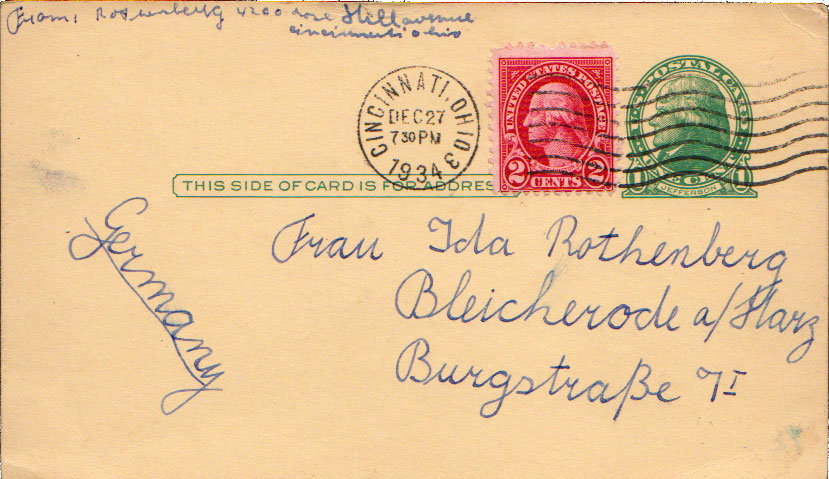 From: Rothenberg 4200 Rose Hill avenue
Cincinnati Ohio
CINCINNATI, OHIO 3
DEC 27
7 30 PM
1934
UNITED STATES POSTAGE
2 CENTS 2
POSTAL CARD
JEFFERSON
THIS SIDE OF CARD IS FOR ADDRES
Germany
Frau Ida Rothenberg
Bleicherode a/Harz
Burgstraße 7I